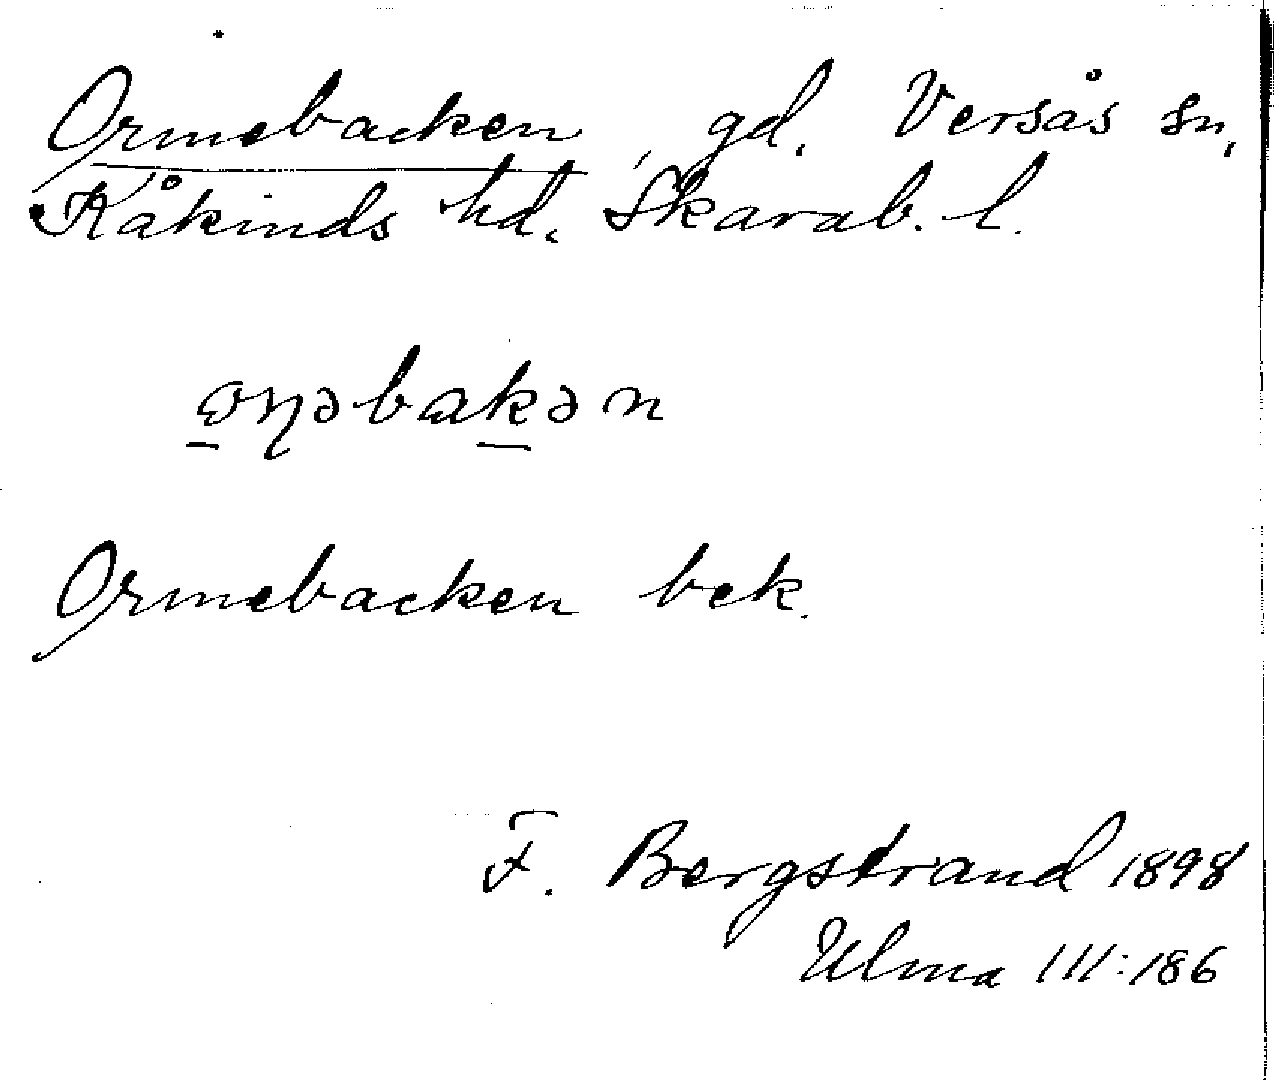 Ormebacken, gd. Versås sn,
Kåkinds hd. Skarab. l.
Ormebacken bek.
F. Bergstrand 1898
Ulma III:186